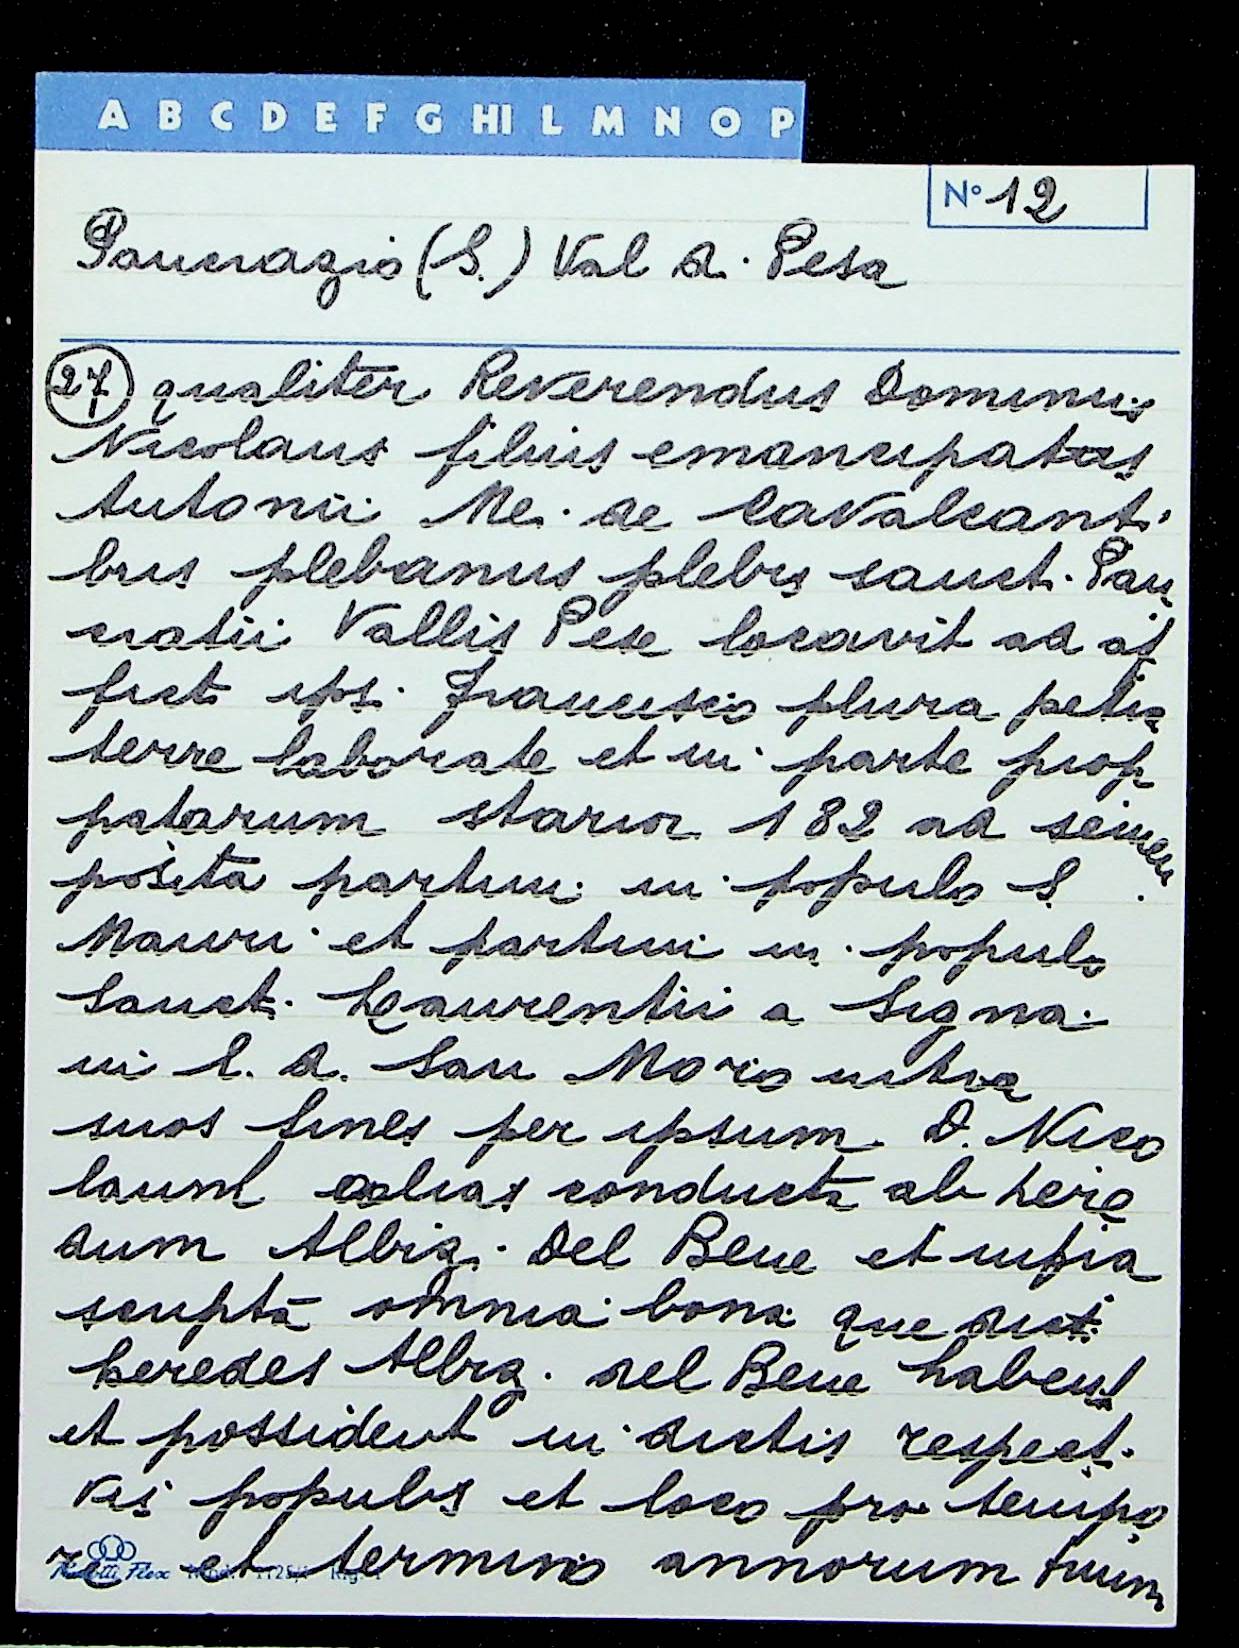 A B C D E F G HI L M N O P
N° 12
Pancrazio (S.) Val d. Pesa
27 qualiter Reverendus Dominus
Nicolaus filius emancipatus
Antonii Me. de Cavalcanti
bus plebanus plebis sanct. Pan
cratii Vallis Pese locavit ad af
fict. ips. Francisco plura petia
terre laborate et in parte prop
patarum starior. 182 ad semen
posita partim in populo S.
Mauri et partim in populo
Sanct. Laurentii a Signa
in l. d. San Moro intra
suos fines per ipsum D. Nico
laum alias conducta ab here
dum Albiz. Del Bene et infra
scripta omnia bona que dict.
heredes Albiz. del Bene habent
et possident in dictis respect.
vis populis et loco pro tempo
re et termino annorum trium